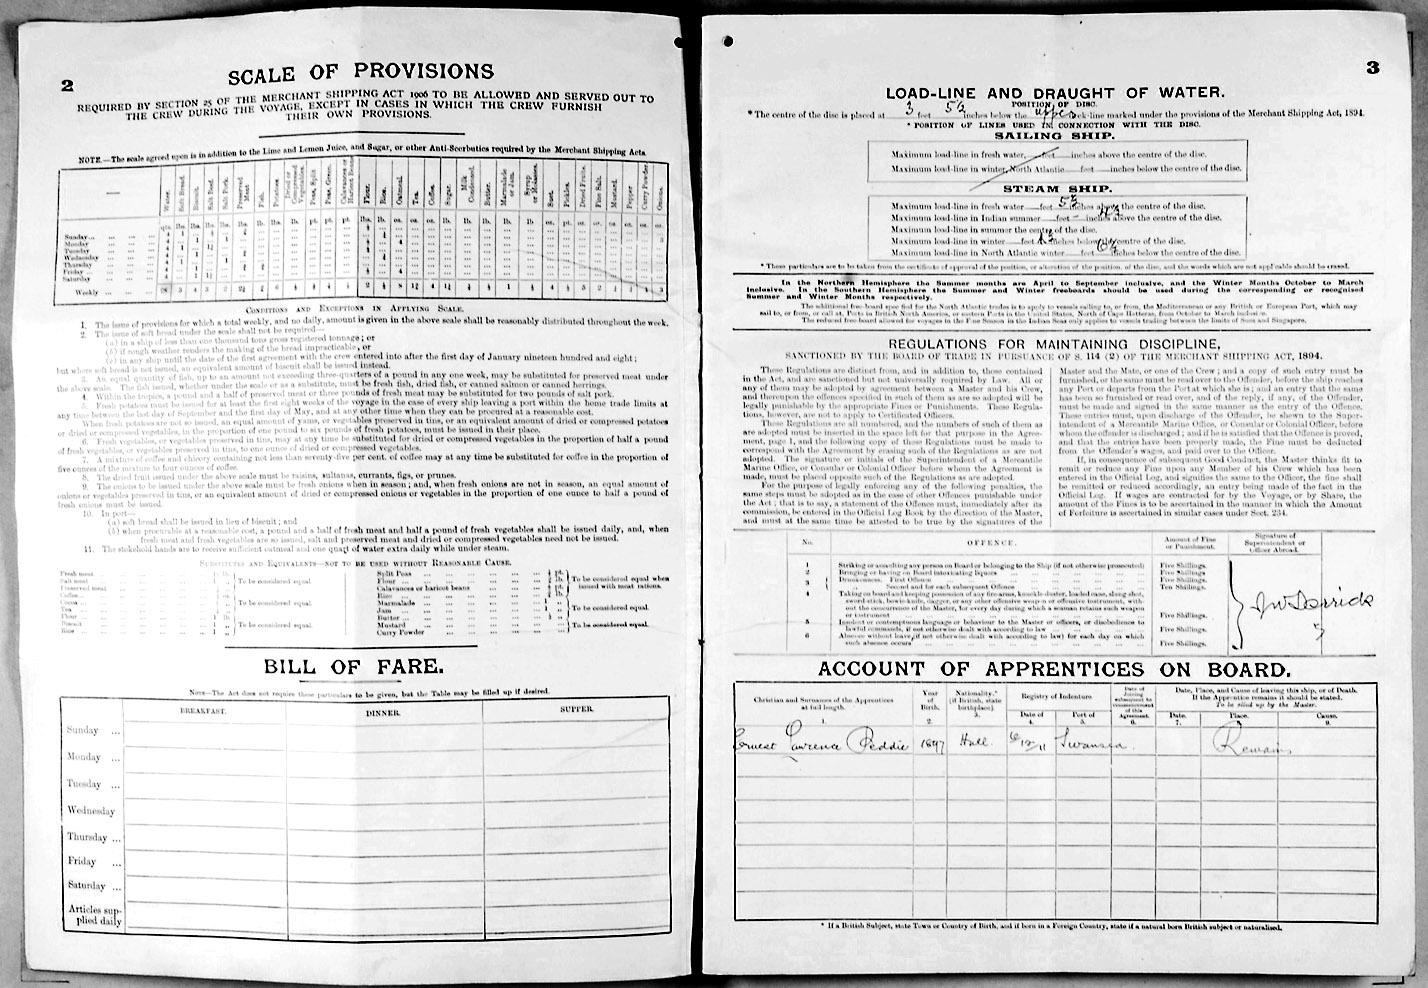 2
SCALE OF PROVISIONS
REQUIRED BY SECTION 25 OF THE MERCHANT SHIPPING ACT 1906 TO BE ALLOWED AND SERVED OUT TO
THE CREW DURING THE VOYAGE, EXCEPT IN CASES IN WHICH THE CREW FURNISH
THEIR OWN PROVISIONS.
NOTE.—The scale agreed upon is in addition to the Lime and Lemon Juice, and Sugar, or other Anti-Scorbutics required by the Merchant Shipping Acts
Water. Soft Bread. Biscuit. Salt Beef. Salt Pork. Preserved Meat Fish. Potatoes. Dried or Compressed Vegetables. Peas, Split Peas, Green. Calavances or Haricot Beans Flour. Rice. Oatmeal. Tea. Coffee. Sugar. Milk Condensed. Butter. Marmalade or Jam. Syrup or Molasses. Suet. Pickles. Dried Fruits. Fine Salt. Mustard. Pepper Curry Powder. Onions.
Sunday
Monday
Tuesday
Wednesday
Thursday
Friday
Saturday
Weekly
CONDITIONS AND EXCEPTIONS IN APPLYING SCALE.
1. The issue of provisions for which a total weekly, and no daily, amount is given in the above scale shall be reasonably distributed throughout the week.
2. The issue of soft bread under the scale shall not be required—
(a) in a ship of less than one thousand tons gross registered tonnage; or
(b) if rough weather renders the making of the bread impracticable, or
(c) in any ship until the date of the first agreement with the crew entered into after the first day of January nineteen hundred and eight;
but where soft bread is not issued, an equivalent amount of biscuit shall be issued instead.
3. An equal quantity of fish, up to an amount not exceeding three-quarters of a pound in any one week, may be substituted for preserved meat under
the above scale. The fish issued, whether under the scale or as a substitute, must be fresh fish, dried fish, or canned salmon or canned herrings.
4. Within the tropics, a pound and a half of preserved meat or three pounds of fresh meat may be substituted for two pounds of salt pork.
5. Fresh potatoes must be issued for at least the first eight weeks of the voyage in the case of every ship leaving a port within the home trade limits at
any time between the last day of September and the first day of May, and at any other time when they can be procured at a reasonable cost.
When fresh potatoes are not so issued, an equal amount of yams, or vegetables preserved in tins, or an equivalent amount of dried or compressed potatoes
or dried or compressed vegetables, in the proportion of one pound to six pounds of fresh potatoes, must be issued in their place.
6. Fresh vegetables, or vegetables preserved in tins, may at any time be substituted for dried or compressed vegetables in the proportion of half a pound
of fresh vegetables, or vegetables preserved in tins, to one ounce of dried or compressed vegetables.
7. A mixture of coffee and chicory containing not less than seventy-five per cent. of coffee may at any time be substituted for coffee in the proportion of
five ounces of the mixture to four ounces of coffee.
8. The dried fruit issued under the above scale must be raisins, sultanas, currants, figs, or prunes.
9. The onions to be issued under the above scale must be fresh onions when in season; and, when fresh onions are not in season, an equal amount of
onions or vegetables preserved in tins, or an equivalent amount of dried or compressed onions or vegetables in the proportion of one ounce to half a pound of
fresh onions must be issued.
10. In port—
(a) soft bread shall be issued in lieu of biscuit; and
(b) when procurable at a reasonable cost, a pound and a half of fresh meat and half a pound of fresh vegetables shall be issued daily, and, when
fresh meat and fresh vegetables are so issued, salt and preserved meat and dried or compressed vegetables need not be issued.
11. The stokehold hands are to receive sufficient oatmeal and one quart of water extra daily while under steam.
SUBSTITUTES AND EQUIVALENTS—NOT TO BE USED WITHOUT REASONABLE CAUSE.
Fresh meat
Salt meat
Preserved meat
To be considered equal.
Coffee
Cocoa
Tea
To be considered equal.
Flour
Biscuit
Rice
To be considered equal.
Split Peas
Flour
Calavances or haricot beans
Rice
To be considered equal when issued with meat rations.
Marmalade
Jam
Butter
To be considered equal.
Mustard
Curry Powder
To be considered equal.
BILL OF FARE.
NOTE—The Act does not require these particulars to be given, but the Table may be filled up if desired.
BREAKFAST. DINNER. SUPPER.
Sunday ...
Monday ...
Tuesday ...
Wednesday
Thursday ...
Friday ...
Saturday ...
Articles supplied daily
3
LOAD-LINE AND DRAUGHT OF WATER.
POSITION OF DISC.
* The centre of the disc is placed at 3 feet 5½ inches below the upper deck-line marked under the provisions of the Merchant Shipping Act, 1894.
* POSITION OF LINES USED IN CONNECTION WITH THE DISC.
SAILING SHIP.
Maximum load-line in fresh water, feet inches above the centre of the disc.
Maximum load-line in winter, North Atlantic feet inches below the centre of the disc.
STEAM SHIP.
Maximum load-line in fresh water feet inches above the centre of the disc.
Maximum load-line in Indian summer feet inches above the centre of the disc.
Maximum load-line in summer the centre of the disc.
Maximum load-line in winter feet inches below the centre of the disc.
Maximum load-line in North Atlantic winter feet inches below the centre of the disc.
* These particulars are to be taken from the certificate of approval of the position, or alteration of the position, of the disc, and the words which are not applicable should be erased.
In the Northern Hemisphere the Summer months are April to September inclusive, and the Winter Months October to March
inclusive. In the Southern Hemisphere the Summer and Winter freeboards should be used during the corresponding or recognised
Summer and Winter Months respectively.
The additional free-board specified for the North Atlantic trades is to apply to vessels sailing to, or from, the Mediterranean or any British or European Port, which may
sail to, or from, or call at, Ports in British North America, or eastern Ports in the United States, North of Cape Hatteras, from October to March inclusive.
The reduced free-board allowed for voyages in the Fine Season in the Indian Seas only applies to vessels trading between the limits of Suez and Singapore.
REGULATIONS FOR MAINTAINING DISCIPLINE,
SANCTIONED BY THE BOARD OF TRADE IN PURSUANCE OF S. 114 (2) OF THE MERCHANT SHIPPING ACT, 1894.
These Regulations are distinct from, and in addition to, those contained
in the Act, and are sanctioned but not universally required by Law. All or
any of them may be adopted by agreement between a Master and his Crew,
and thereupon the offences specified in such of them as are so adopted will be
legally punishable by the appropriate Fines or Punishments. These Regulations,
however, are not to apply to Certificated Officers.
These Regulations are all numbered, and the numbers of such of them as
are adopted must be inserted in the space left for that purpose in the Agreement,
page 1, and the following copy of these Regulations must be made to
correspond with the Agreement by erasing such of the Regulations as are not
adopted. The signature or initials of the Superintendent of a Mercantile
Marine Office, or Consular or Colonial Officer before whom the Agreement is
made, must be placed opposite such of the Regulations as are adopted.
For the purpose of legally enforcing any of the following penalties, the
same steps must be adopted as in the case of other Offences punishable under
the Act; that is to say, a statement of the Offence must, immediately after its
commission, be entered in the Official Log Book by the direction of the Master,
and must at the same time be attested to be true by the signatures of the
Master and the Mate, or one of the Crew; and a copy of such entry must be
furnished, or the same must be read over to the Offender, before the ship reaches
any Port or departs from the Port at which she is; and an entry that the same
has been so furnished or read over, and of the reply, if any, of the Offender,
must be made and signed in the same manner as the entry of the Offence.
These entries must, upon discharge of the Offender, be shown to the Superintendent
of a Mercantile Marine Office, or Consular or Colonial Officer, before
whom the offender is discharged; and if he is satisfied that the Offence is proved,
and that the entries have been properly made, the Fine must be deducted
from the Offender's wages, and paid over to the Officer.
If, in consequence of subsequent Good Conduct, the Master thinks fit to
remit or reduce any Fine upon any Member of his Crew which has been
entered in the Official Log, and signifies the same to the Officer, the fine shall
be remitted or reduced accordingly, an entry being made of the fact in the
Official Log. If wages are contracted for by the Voyage, or by Share, the
amount of the Fines is to be ascertained in the manner in which the Amount
of Forfeiture is ascertained in similar cases under Sect. 234.
No. OFFENCE. Amount of Fine or Punishment. Signature of Superintendent or Officer Abroad.
1 Striking or assaulting any person on Board or belonging to the Ship (if not otherwise prosecuted) Five Shillings.
2 Bringing or having on Board intoxicating liquors Five Shillings.
3 Drunkenness. First Offence Five Shillings.
Second and for each subsequent Offence Ten Shillings.
4 Taking on board and keeping possession of any fire-arms, knuckle-duster, loaded cane, slung-shot,
sword-stick, bowie-knife, dagger, or any other offensive weapon or offensive instrument, without
the concurrence of the Master, for every day during which a seaman retains such weapon
or instrument Five Shillings.
5 Insolent or contemptuous language or behaviour to the Master or officers, or disobedience to
lawful commands, if not otherwise dealt with according to law Five Shillings.
6 Absence without leave (if not otherwise dealt with according to law) for each day on which
such absence occurs Five Shillings.
ACCOUNT OF APPRENTICES ON BOARD.
Christian and Surnames of the Apprentices at full length. 1.
Year of Birth. 2.
Nationality.* (if British, state birthplace). 3.
Registry of Indenture.
Date of 4.
Port of 5.
Date of Joining subsequent to commencement of this Agreement. 6.
Date, Place, and Cause of leaving this ship, or of Death.
If the Apprentice remains it should be stated.
To be filled up by the Master.
Date. 7. Place. Cause.
Ernest Lawrence Peddie 1897 Hull. 6/12/11 Swansea. Remains
* If a British Subject, state Town or Country of Birth, and if born in a Foreign Country, state if a natural born British subject or naturalised.